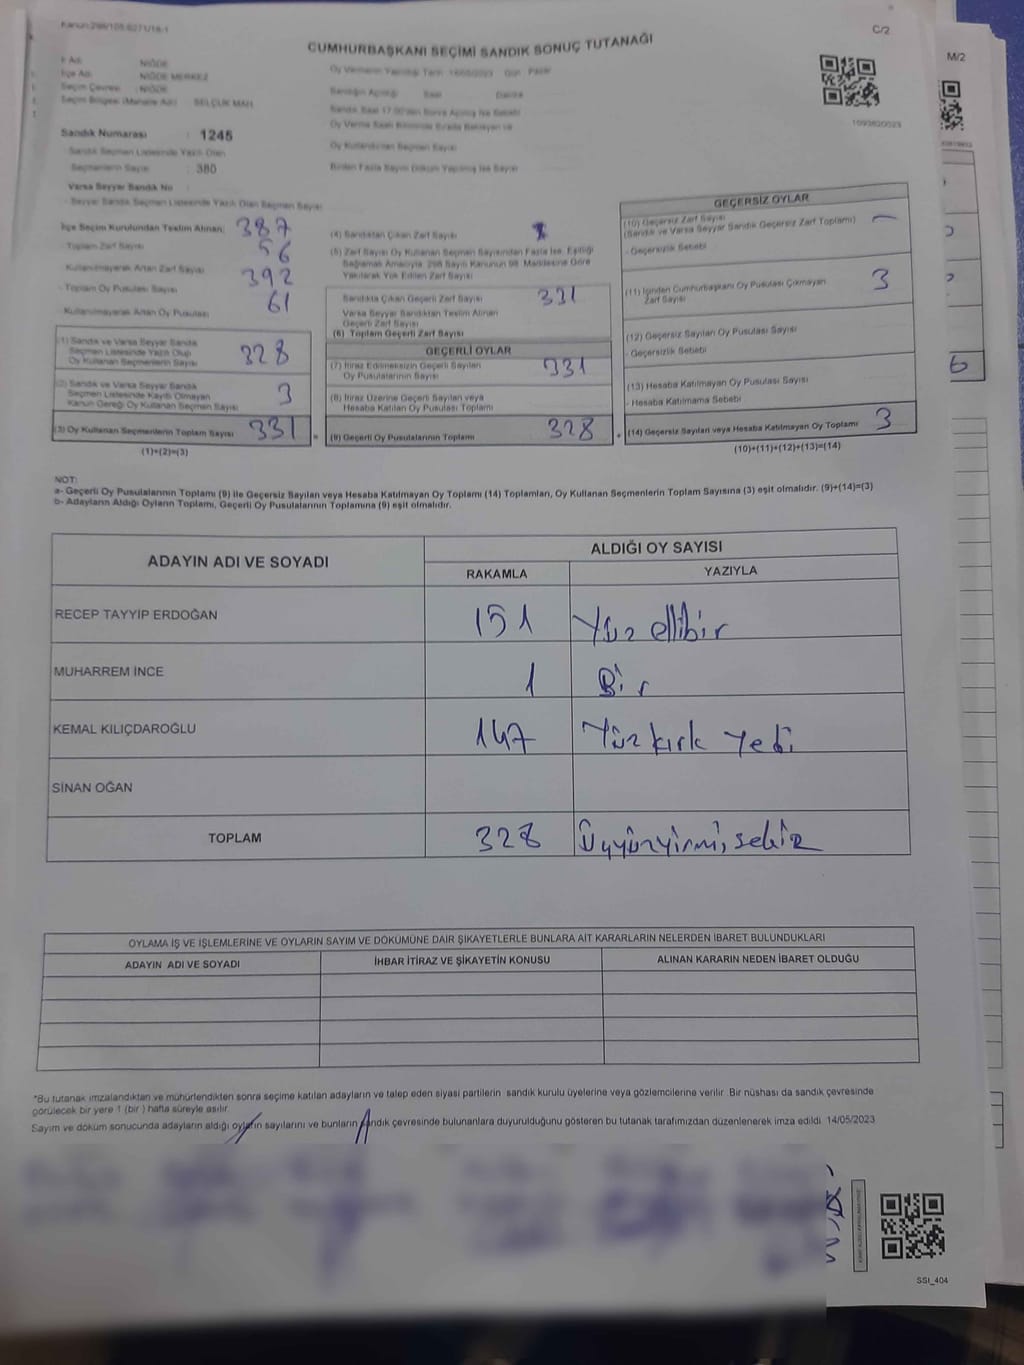 Kanun:298/105.6271/18-1
C/2
M/2
CUMHURBAŞKANI SEÇİMİ SANDIK SONUÇ TUTANAĞI
İl Adı NİĞDE
İlçe Adı NİĞDE MERKEZ
Seçim Çevresi : NİĞDE
Seçim Bölgesi (Mahalle Adı) SELÇUK MAH.
Oy Vermenin Yapıldığı Tarih 14/05/2023 Gün Pazar
Sandığın Açıldığı Saat Dakika
Oy Kullandırılan Seçmen Sayısı
Birden Fazla Sayım Döküm Yapılmış İse Sayısı
1093820023
Sandık Numarası : 1245
Sandık Seçmen Listesinde Yazılı Olan
Seçmenlerin Sayısı : 380
Varsa Seyyar Sandık No :
- Seyyar Sandık Seçmen Listesinde Yazılı Olan Seçmen Sayısı
İlçe Seçim Kurulundan Teslim Alınan: 387
- Toplam Zarf Sayısı 56
- Kullanılmayarak Artan Zarf Sayısı 392
- Toplam Oy Pusulası Sayısı 61
- Kullanılmayarak Artan Oy Pusulası
(1) Sandık ve Varsa Seyyar Sandık
Seçmen Listesinde Yazılı Olup
Oy Kullanan Seçmenlerin Sayısı 328
(2) Sandık ve Varsa Seyyar Sandık
Seçmen Listesinde Kayıtlı Olmayan
Kanun Gereği Oy Kullanan Seçmen Sayısı 3
(3) Oy Kullanan Seçmenlerin Toplam Sayısı 331
(1)+(2)=(3)
(4) Sandıktan Çıkan Zarf Sayısı
(5) Zarf Sayısı Oy Kullanan Seçmen Sayısından Fazla İse, Eşitliği
Sağlamak Amacıyla, 298 Sayılı Kanunun 98. Maddesine Göre
Yakılarak Yok Edilen Zarf Sayısı
Sandıkta Çıkan Geçerli Zarf Sayısı 331
Varsa Seyyar Sandıktan Teslim Alınan
Geçerli Zarf Sayısı
(6) Toplam Geçerli Zarf Sayısı
GEÇERLİ OYLAR
(7) İtiraz Edilmeksizin Geçerli Sayılan
Oy Pusulalarının Sayısı 331
(8) İtiraz Üzerine Geçerli Sayılan veya
Hesaba Katılan Oy Pusulası Toplamı
(9) Geçerli Oy Pusulalarının Toplamı 328
GEÇERSİZ OYLAR
(10) Geçersiz Zarf Sayısı
(Sandık ve Varsa Seyyar Sandık Geçersiz Zarf Toplamı) —
- Geçersizlik Sebebi
(11) İçinden Cumhurbaşkanı Oy Pusulası Çıkmayan
Zarf Sayısı 3
(12) Geçersiz Sayılan Oy Pusulası Sayısı
- Geçersizlik Sebebi
(13) Hesaba Katılmayan Oy Pusulası Sayısı
- Hesaba Katılmama Sebebi
(14) Geçersiz Sayılan veya Hesaba Katılmayan Oy Toplamı 3
(10)+(11)+(12)+(13)=(14)
NOT:
a- Geçerli Oy Pusulalarının Toplamı (9) ile Geçersiz Sayılan veya Hesaba Katılmayan Oy Toplamı (14) Toplamları, Oy Kullanan Seçmenlerin Toplam Sayısına (3) eşit olmalıdır. (9)+(14)=(3)
b- Adayların Aldığı Oyların Toplamı, Geçerli Oy Pusulalarının Toplamına (9) eşit olmalıdır.
ADAYIN ADI VE SOYADI
ALDIĞI OY SAYISI
RAKAMLA YAZIYLA
RECEP TAYYİP ERDOĞAN 151 Yüz ellibir
MUHARREM İNCE 1 Bir
KEMAL KILIÇDAROĞLU 147 Yüz kırk Yedi
SİNAN OĞAN
TOPLAM 328 Üçyüzyirmisekiz
OYLAMA İŞ VE İŞLEMLERİNE VE OYLARIN SAYIM VE DÖKÜMÜNE DAİR ŞİKAYETLERLE BUNLARA AİT KARARLARIN NELERDEN İBARET BULUNDUKLARI
ADAYIN ADI VE SOYADI İHBAR İTİRAZ VE ŞİKAYETİN KONUSU ALINAN KARARIN NEDEN İBARET OLDUĞU
*Bu tutanak imzalandıktan ve mühürlendikten sonra seçime katılan adayların ve talep eden siyasi partilerin sandık kurulu üyelerine veya gözlemcilerine verilir. Bir nüshası da sandık çevresinde
görülecek bir yere 1 (bir) hafta süreyle asılır.
Sayım ve döküm sonucunda adayların aldığı oyların sayılarını ve bunların sandık çevresinde bulunanlara duyurulduğunu gösteren bu tutanak tarafımızdan düzenlenerek imza edildi. 14/05/2023
SSI_404